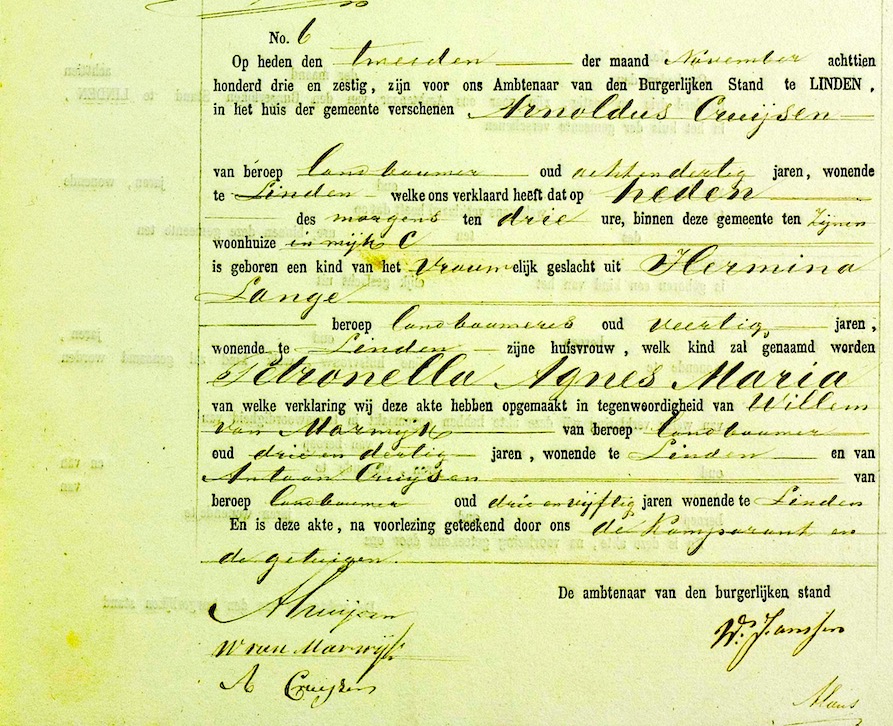 No. 6
Op heden den tweeden der maand November achttien
honderd drie en zestig, zijn voor ons Ambtenaar van den Burgerlijken Stand te LINDEN,
in het huis der gemeente verschenen Arnoldus Cruijsen
van beroep landbouwer oud achtendertig jaren, wonende
te Linden welke ons verklaard heeft dat op heden
des morgens ten drie ure, binnen deze gemeente ten Zijnen
woonhuize in wijk C
is geboren een kind van het vrouwelijk geslacht uit Hermina
Lange
beroep landbouweres oud veertig jaren,
wonende te Linden zijne huisvrouw, welk kind zal genaamd worden
Petronella Agnes Maria
van welke verklaring wij deze akte hebben opgemaakt in tegenwoordigheid van Willem
van Marwijk van beroep landbouwer
oud drie en dertig jaren, wonende te Linden en van
Antoon Cruijsen van
beroep landbouwer oud drie en vijftig jaren wonende te Linden
En is deze akte, na voorlezing geteekend door ons de Komparant en
de getuigen.
De ambtenaar van den burgerlijken stand
A Cruijsen
W. Janssen
W van Marwijk
A Cruijsen